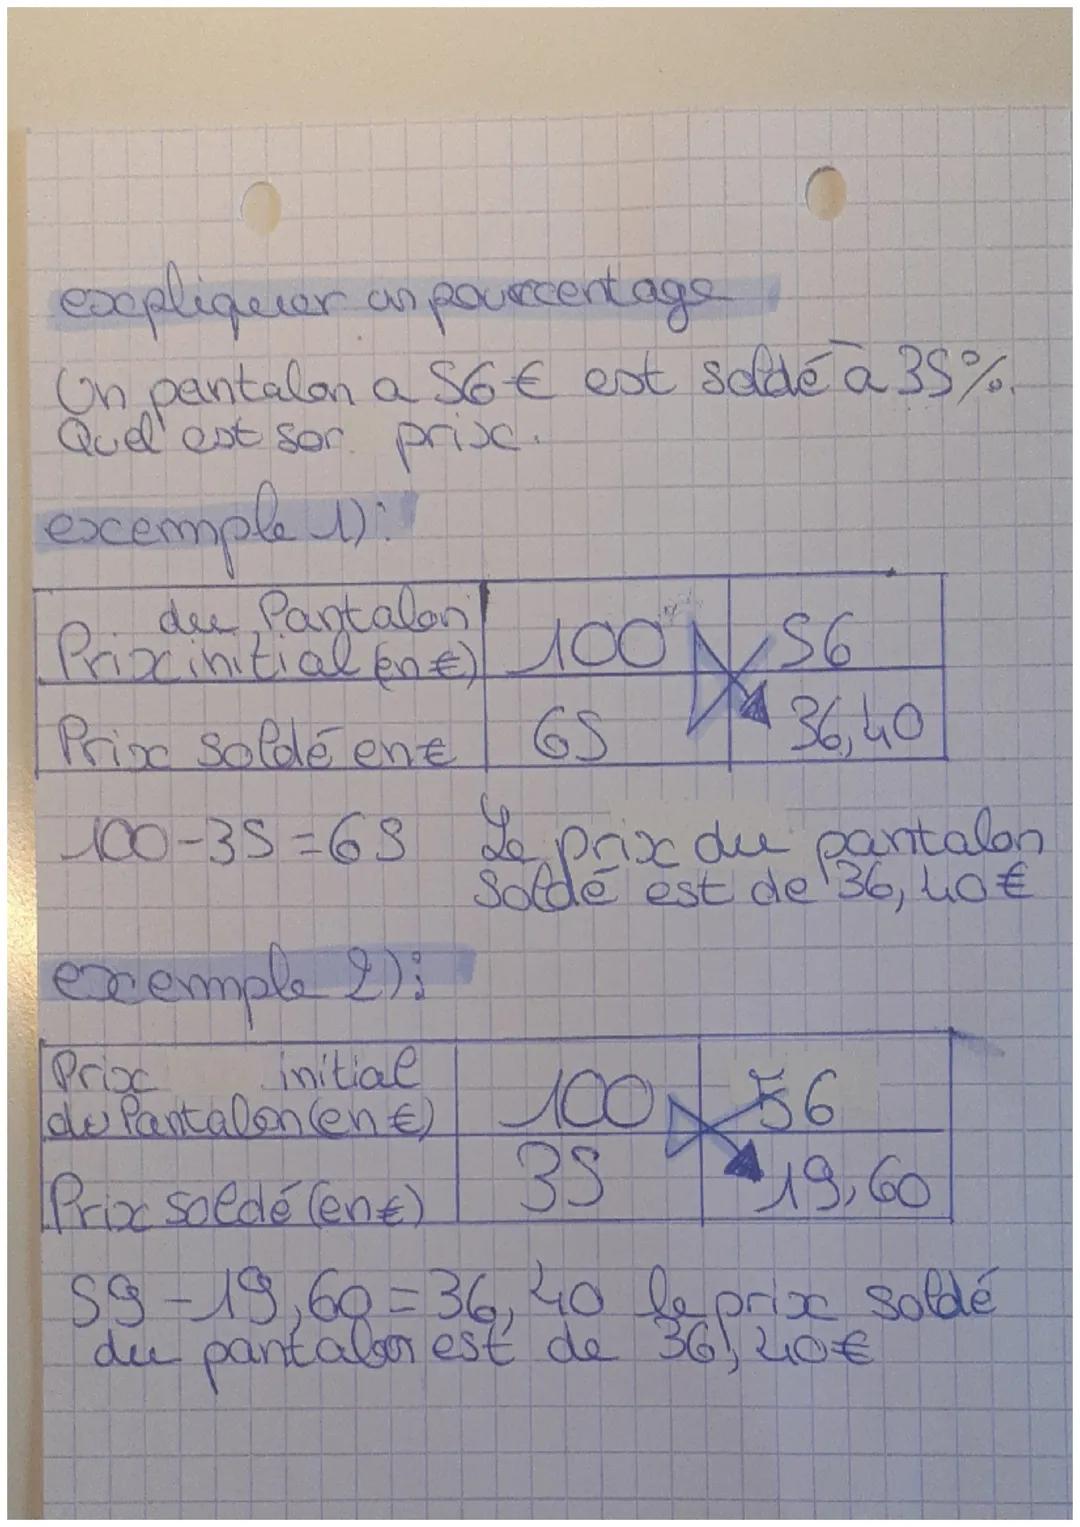 expliquer un pourcentage
Un pantalon a 56€ est soldé à 35%.
Quel est son prix.
exemple 1):
du Pantalon
Prix initial (en €)
100
56
Prix soldé en €
65
36,40
100-35=65
Le prix du pantalon
soldé est de 36,40€
exemple 2):
Prix initial
du Pantalon (en €)
100
56
Prix soldé (en €)
35
19,60
59-19,60=36,40 le prix soldé
du pantalon est de 36,40€